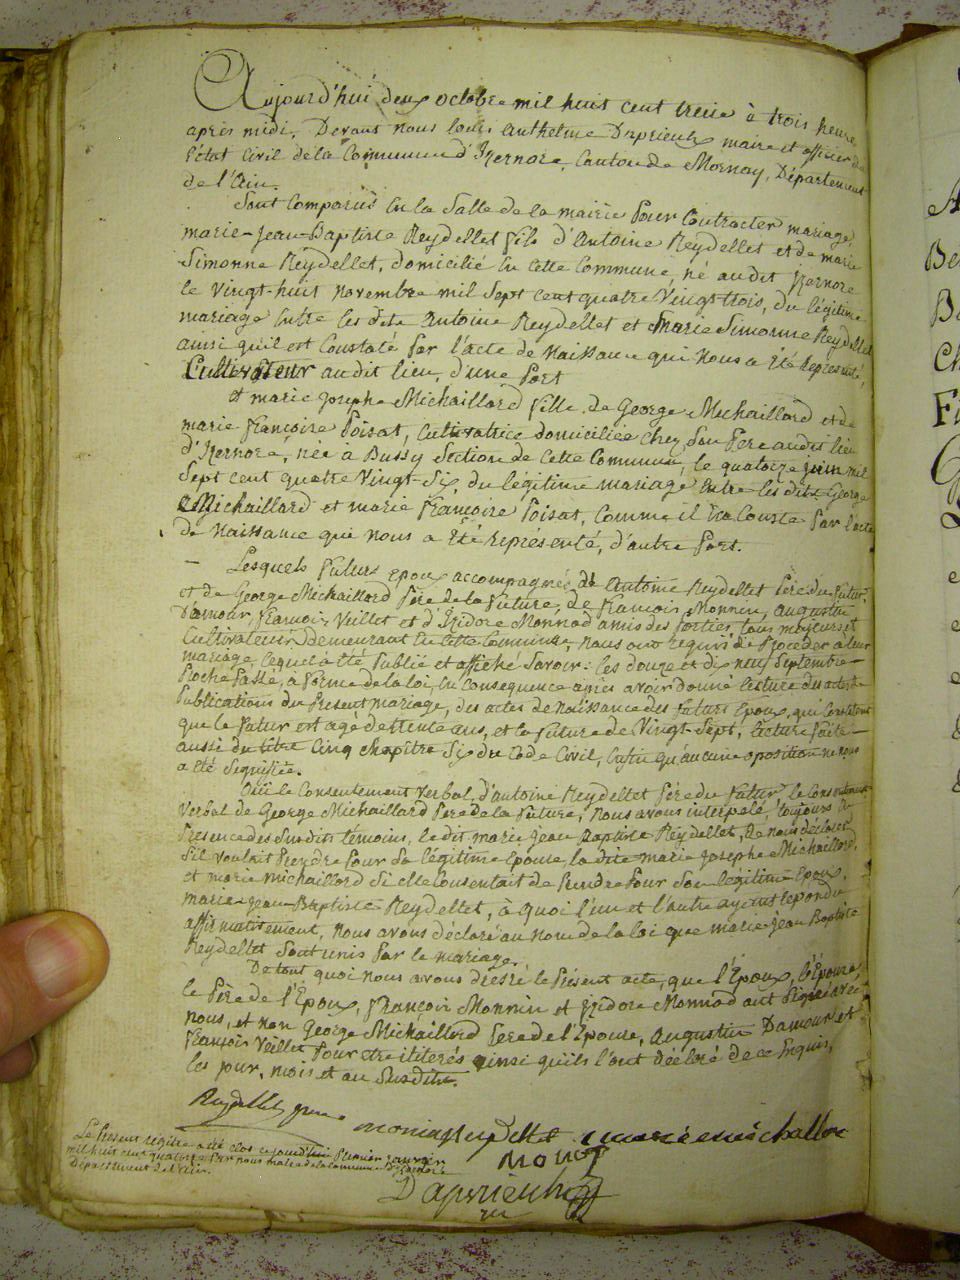 Aujourd'hui deux octobre mil huit cent treize à trois heure
après midi. Devant nous Louis Anthelme Daprieulx maire et officier de
l'état civil de la Commune d'Izernore, Canton de Mornay, Département
de l'Ain.
Sont Comparus En la Salle de la mairie Pour Contracter mariage,
marie-Jean-Baptiste Reydellet fils d'Antoine Reydellet et de marie
Simonne Reydellet, domicilié En cette Commune, né audit Izernore
le Vingt-huit novembre mil Sept cent quatre Vingt-trois, du légitime
mariage Entre les dits Antoine Reydellet et Marie Simonne Reydellet
ainsi qu'il est Constaté Par l'acte de Naissance qui nous a été représenté,
Cultivateur audit lieu, d'une Part
et marie Josephe Michaillard fille de George Michaillard et de
marie Françoise Poisat, Cultivatrice domiciliée chez Son Pere audit lieu
d'Izernore, née à Bussy Section de Cette Commune, le quatorze juin mil
Sept cent quatre Vingt-Six, du légitime mariage Entre les dits George
Michaillard et marie Françoise Poisat, Comme il En Conste Par l'acte
de Naissance qui nous a été représenté, d'autre Part.
Lesquels futurs Epoux accompagnés de Antoine Reydellet Père du futur
et de George Michaillard Père de la future, de François Monnin, Augustin
Damour, François Veillet et d'Izidore Monnod amis des Parties, tous majeurs et
Cultivateurs demeurant En cette Commune, nous ont requis de Procéder à leur
mariage, lequel a été Publié et affiché Savoir: les douze et dix neuf Septembre
Proche Passé, à forme de la loi, En Consequence après avoir donné lecture des actes de
Publications du Présent mariage, des actes de Naissance des futurs Epoux, qui Constatent
que le futur est agé de trente ans, et la future de Vingt-Sept, lecture faite
aussi du titre Cinq chapitre Six du Code Civil, Enfin qu'aucune oposition ne nous
a été Signifiée.
Ouï le Consentement verbal d'antoine Reydellet Père du futur, le Consentement
Verbal de George Michaillard Père de la future, Nous avons interpelé, toujours En
Présence des Susdits témoins, le dit marie Jean Baptiste Reydellet, de nous déclarer
S'il voulait Prendre Pour Sa légitime Epouse, la dite marie Josephe Michaillard,
et marie Michaillard Si elle Consentait de Prendre Pour Son legitime Epoux,
marie-Jean-Baptiste Reydellet, à quoi l'un et l'autre ayant repondu
affirmativement, Nous avons déclaré au nom de la loi que marie Jean Baptiste
Reydellet Sont unis Par le mariage.
De tout quoi nous avons dressé le Présent acte, que l'Epoux, l'Epouse
le Père de l'Epoux, François Monnin et Izidore Monnod ont Signé avec
nous, et non George Michaillard Pere de l'Epouse, Augustin Damour et
François Veillet Pour etre iliterés ainsi qu'ils l'ont déclaré de ce Enquis,
les jour, mois et an Susdits.
Reydellet
monin Reydellet marie michallor
Le Present régitre a été clos cejourd'hui Premier janvier
mil huit cent quatorze Par nous maire de la Commune d'Izernore
Département de l'Ain.
monod
Daprieulx